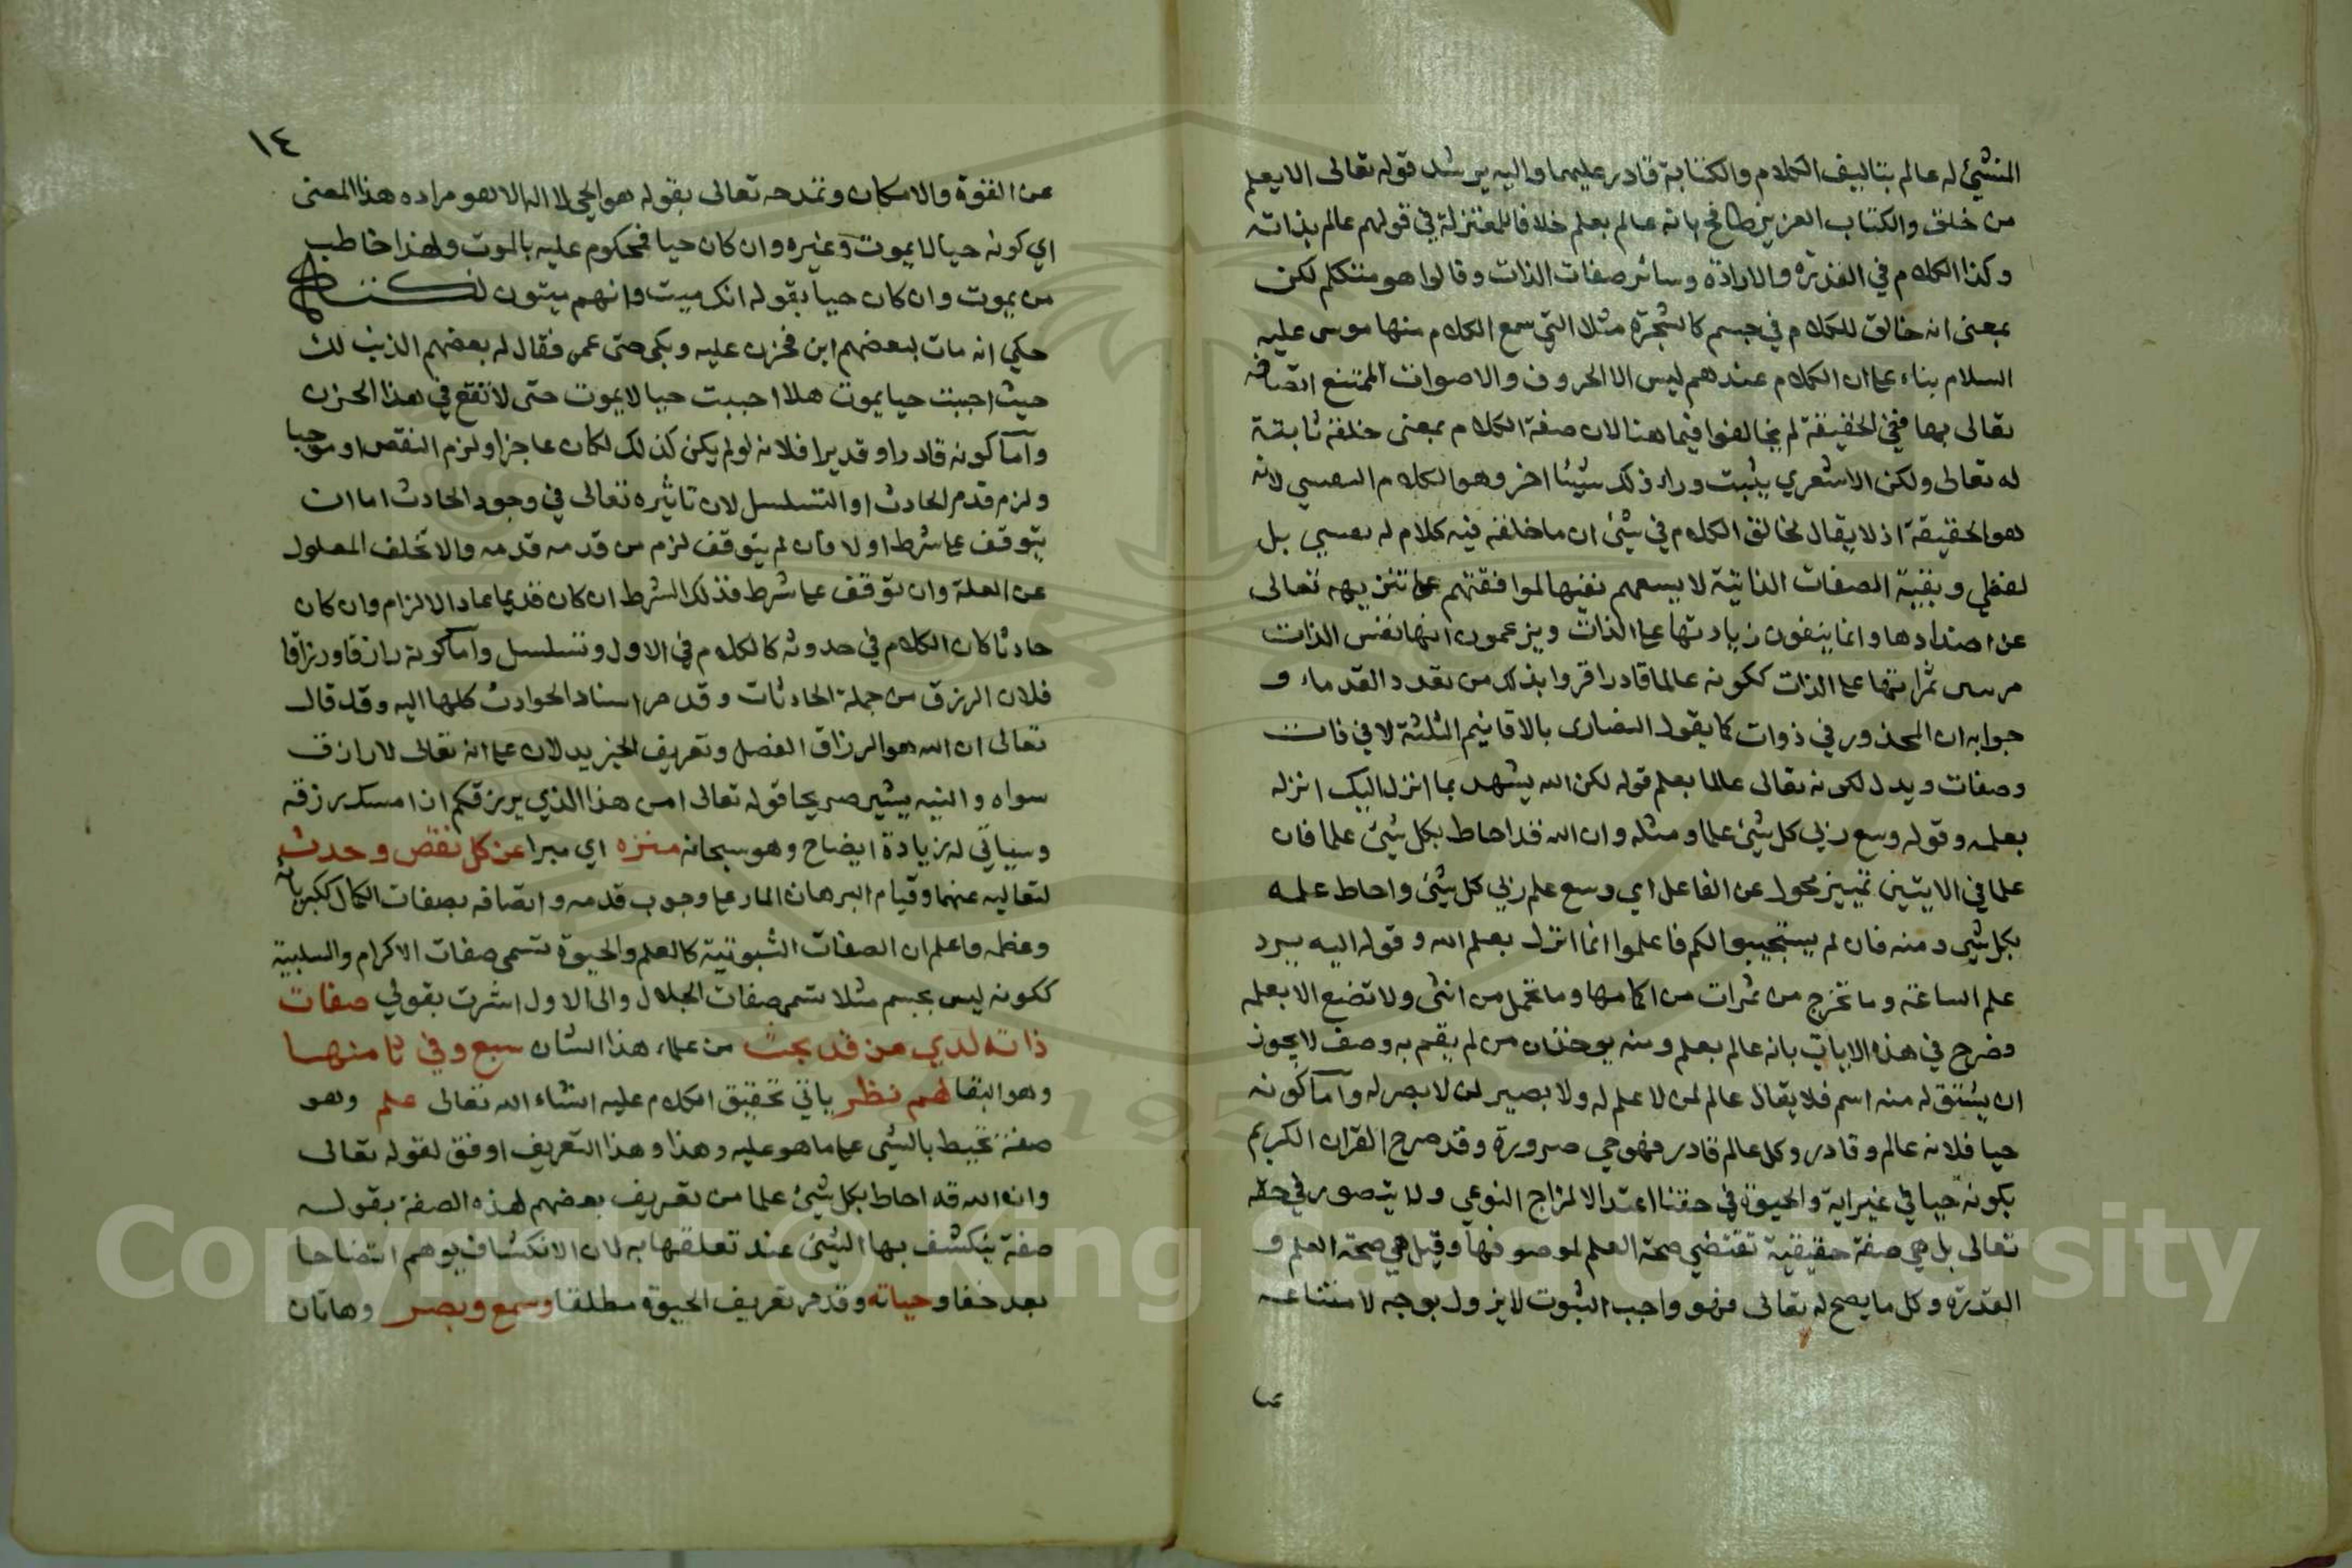 المنشئ له عالم بتاليف الكلام والكتابة قادر عليهما واليه يرشد قوله تعالى الا يعلم
من خلق والكتاب العزيز طافح بانه عالم بعلم خلافا للمعتزلة في قولهم عالم بذاته
وكذا الكلام في القدرة والارادة وسائر صفات الذات وقالوا هو متكلم لكن
بمعنى انه خالق للكلام في جسم كالشجرة مثلا التي سمع الكلام منها موسى عليه
السلام بناء على ان الكلام عندهم ليس الا الحروف والاصوات الممتنع اتصافه
تعالى بها ففي الحقيقة لم يخالفوا فيما هنا لان صفة الكلام بمعنى خلقه ثابتة
له تعالى ولكن الاشعري يثبت وراء ذلك شيئا اخر وهو الكلام النفسي لانه
هو الحقيقة اذ لا يقال لخالق الكلام في شئ ان ما خلقه فيه كلام له نفسي بل
لفظي وبقية الصفات الذاتية لا يسعهم نفيها لموافقتهم على تنزيهه تعالى
عن اضدادها وانما ينفون زيادتها على الذات ويزعمون انها نفس الذات
مرسى ثمراتها على الذات ككونه عالما قادرا فروا بذلك من تعدد القدماء و
جوابه ان المحذور في ذوات كما يقول النصارى بالاقانيم الثلثة لا في ذات
وصفات ويدل لكونه تعالى عالما بعلم قوله لكن الله يشهد بما انزل اليك انزله
بعلمه وقوله وسع ربي كل شئ علما ومثله وان الله قد احاط بكل شئ علما فان
علما في الايتين تمييز محول عن الفاعل اي وسع علم ربي كل شئ واحاط علمه
بكل شي ومنه فان لم يستجيبوا لكم فاعلموا انما انزل بعلم الله وقوله اليه يرد
علم الساعة وما تخرج من ثمرات من اكمامها وما تحمل من انثى ولا تضع الا بعلمه
وصرح في هذه الايات بانه عالم بعلم ومنه يوخذ ان من لم يقم به وصف لا يجوز
ان يشتق له منه اسم فلا يقال عالم لمن لا علم له ولا بصير لمن لا بصر له وآما كونه
حيا فلانه عالم وقادر وكل عالم قادر فهو حي ضرورة وقد صرح القران الكريم
بكونه حيا في غير اية والحيوة في حقنا اعتدال المزاج النوعي ولا يتصور في حقه
تعالى بل هي صفة حقيقية تقتضي صحة العلم لموصوفها وقيل هي صحة العلم و
القدرة وكل ما يصح له تعالى فهو واجب الثبوت لا يزول بوجه لامتناعه
عن
١٤
عن القوة والامكان وتمدحه تعالى بقوله هو الحي لا اله الا هو مراده هذا المعنى
اي كونه حيا لا يموت وغيره وان كان حيا فمحكوم عليه بالموت ولهذا خاطب
من يموت وان كان حيا بقوله انك ميت وانهم ميتون
حكي انه مات لبعضهم ابن فحزن عليه وبكى حتى عمى فقال له بعضهم الذنب لك
حيث احببت حيا يموت هلا احببت حيا لا يموت حتى لا تقع في هذا الحزن
وآما كونه قادرا وقديرا فلانه لو لم يكن كذلك لكان عاجزا ولزم النقص او موجبا
ولزم قدم الحادث او التسلسل لان تاثيره تعالى في وجود الحادث اما ان
يتوقف على شرط اولا فان لم يتوقف لزم من قدمه قدمه والا تخلف المعلول
عن العلة وان توقف على شرط فذلك الشرط ان كان قديما عاد الالزام وان كان
حادثا كان الكلام في حدوثه كالكلام في الاول وتسلسل وآما كونه رازقا ورزاقا
فلان الرزق من جملة الحادثات وقد مر اسناد الحوادث كلها اليه وقد قال
تعالى ان الله هو الرزاق الفصل وتعريف الخبر يدلان على انه تعالى لا رازق
سواه واليه يشير صريحا قوله تعالى امن هذا الذي يرزقكم ان امسك رزقه
وسياتي له زيادة ايضاح وهو سبحانه منزه اي مبرا عن كل نقص وحدث
لتعاليه عنهما وقيام البرهان المار على وجوب قدمه واتصافه بصفات الكمال ككبرياء
وعظمه واعلم ان الصفات الثبوتية كالعلم والحيوة تسمى صفات الاكرام والسلبية
ككونه ليس بجسم مثلا تسمى صفات الجلال والى الاول اشرت بقولي صفات
ذاته لدي من قد بحث من علماء هذا الشان سبع وفي ثامنها
وهو البقا لهم نظر ياتي تحقيق الكلام عليه انشاء الله تعالى علم وهو
صفة تحيط بالشي على ما هو عليه وهذا وهذا التعريف اوفق لقوله تعالى
وان الله قد احاط بكل شئ علما من تعريف بعضهم لهذه الصفة بقوله
صفة ينكشف بها الشئ عند تعلقها به لان الانكشاف يوهم اتضاحا
بعد خفا وحياته وقد مر تعريف الحيوة مطلقا وسمع وبصر وهاتان
Copyright © King Saud University
195